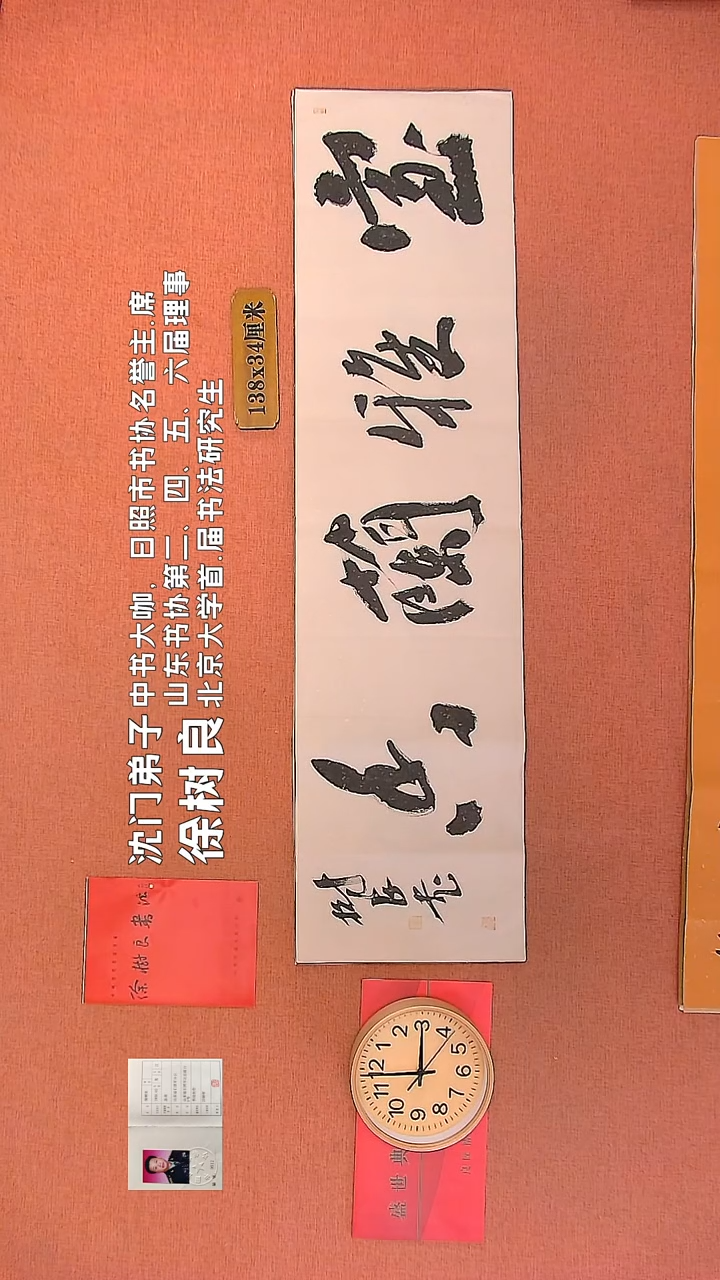 沈门弟子 中书大咖，日照市书协名誉主席
山东书协第三、四、五、六届理事
徐树良 北京大学首届书法研究生
138x34厘米
室雅蘭香
樹良書
徐樹良書法
盛世典
12 1 2 3 4 5 6 7 8 9 10 11